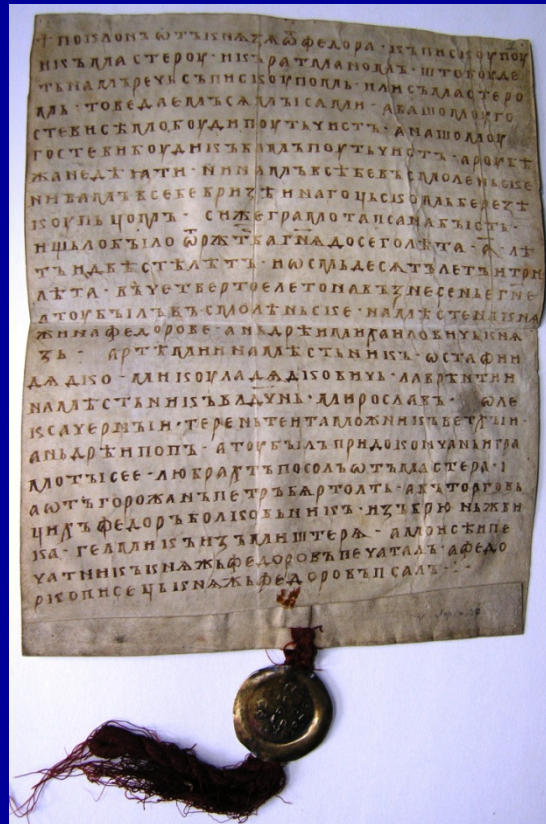 + ПОКЛОНЪ ѾТЪ КНѦЗѦ Ѿ ФЕДОРА · КЪ ПИСКОУПОУ
И КЪ МАСТЕРОУ · И КЪ РАТМАНОМЪ · ШТО БОУДЕ
ТЬ НАМЪ РЕЧЬ СЪ ПИСКОУПОМЬ · ИЛИ СЪ МАСТЕРО
МЬ · ТО ВЕДАЕМЪСѦ МЫ САМИ · А ВАШОМОУ ГО
СТЕВИ СѢМО БОУДИ ПОУТЬ ЧИСТЪ · А НАШОМОУ
ГОСТЕВИ БОУДИ КЪ ВАМЪ ПОУТЬ ЧИСТЪ · А РОУБѢ
ЖА НЕ ДѢѦТИ · НИ НАМЪ В СЕБЕ В СМОЛЕНЬСКЕ
НИ ВАМЪ В СЕБЕ В РИЗѢ И НА ГОЦЬКОМЬ БЕРЕЗѢ
КОУПЬЦОМЪ · СИ ЖЕ ГРАМОТА ПСАНА БЫСТЬ ·
ИШЬЛО БЫЛО Ѿ РЖТВА ГНѦ ДО СЕГО ЛѢТА · А҃ ЛѢ
ТЪ И ДВѢСТѢ ЛѢТЪ · И ОСМЬДЕСѦТЪ ЛЕТЪ И ТРИ
ЛѢТА · В ЧЕТВЕРТОЕ ЛЕТО НА ВЪЗНЕСЕНЬЕ ГНЕ
А ТОУ БЫЛЪ В СМОЛЕНЬСКЕ · НАМѢСТЕНЬ КНѦ
ЖИ НА ФЕДОРОВЕ · АНЬДРѢИ МИХАИЛОВИЧЬ КНѦ
ЗЬ · АРТѢМИИ НАМѢСТЬНИКЪ · ѠСТАФИИ
ДѦДКО · МИКОУЛА ДѦДКОВИЧЬ · ЛАВРѢНТИИ
НАМѢСТЬНИКЪ ВЛАДЧНЬ · МИРОСЛАВЪ · ѠЛЕ
КСА ЧЕРНЫИ · ТЕРЕНЬТЕИ ТАМОЖНИКЪ ВЕТХЫИ ·
АНЬДРѢИ ПОПЪ · А ТОУ БЫЛЪ ПРИ ДОКОНЧАНЬИ ГРА
МОТЫ СЕЕ · ЛЮБРАХТЪ ПОСОЛЪ ѾТЪ МАСТЕРА · І
А ѾТЪ ГОРОЖАНЪ ПЕТРЪ БѦРТОЛТЬ · А ВЪ ТОРГОВЬ
ЦИХЪ ФЕДОРЪ ВОЛКОВЬНИКЪ · ИЗЪ БРЮНЬЖВИ
КА · ГЕЛМИКЪ ИЗЪ МИШТЕРѦ · А МОИСѢИ ПЕ
ЧАТНИКЪ КНѦЖЬ ФЕДОРОВЪ ПЕЧАТАЛЪ · А ФЕДО
РКО ПИСЕЦЬ КНѦЖЬ ФЕДОРОВЪ ПСАЛЪ ·:·